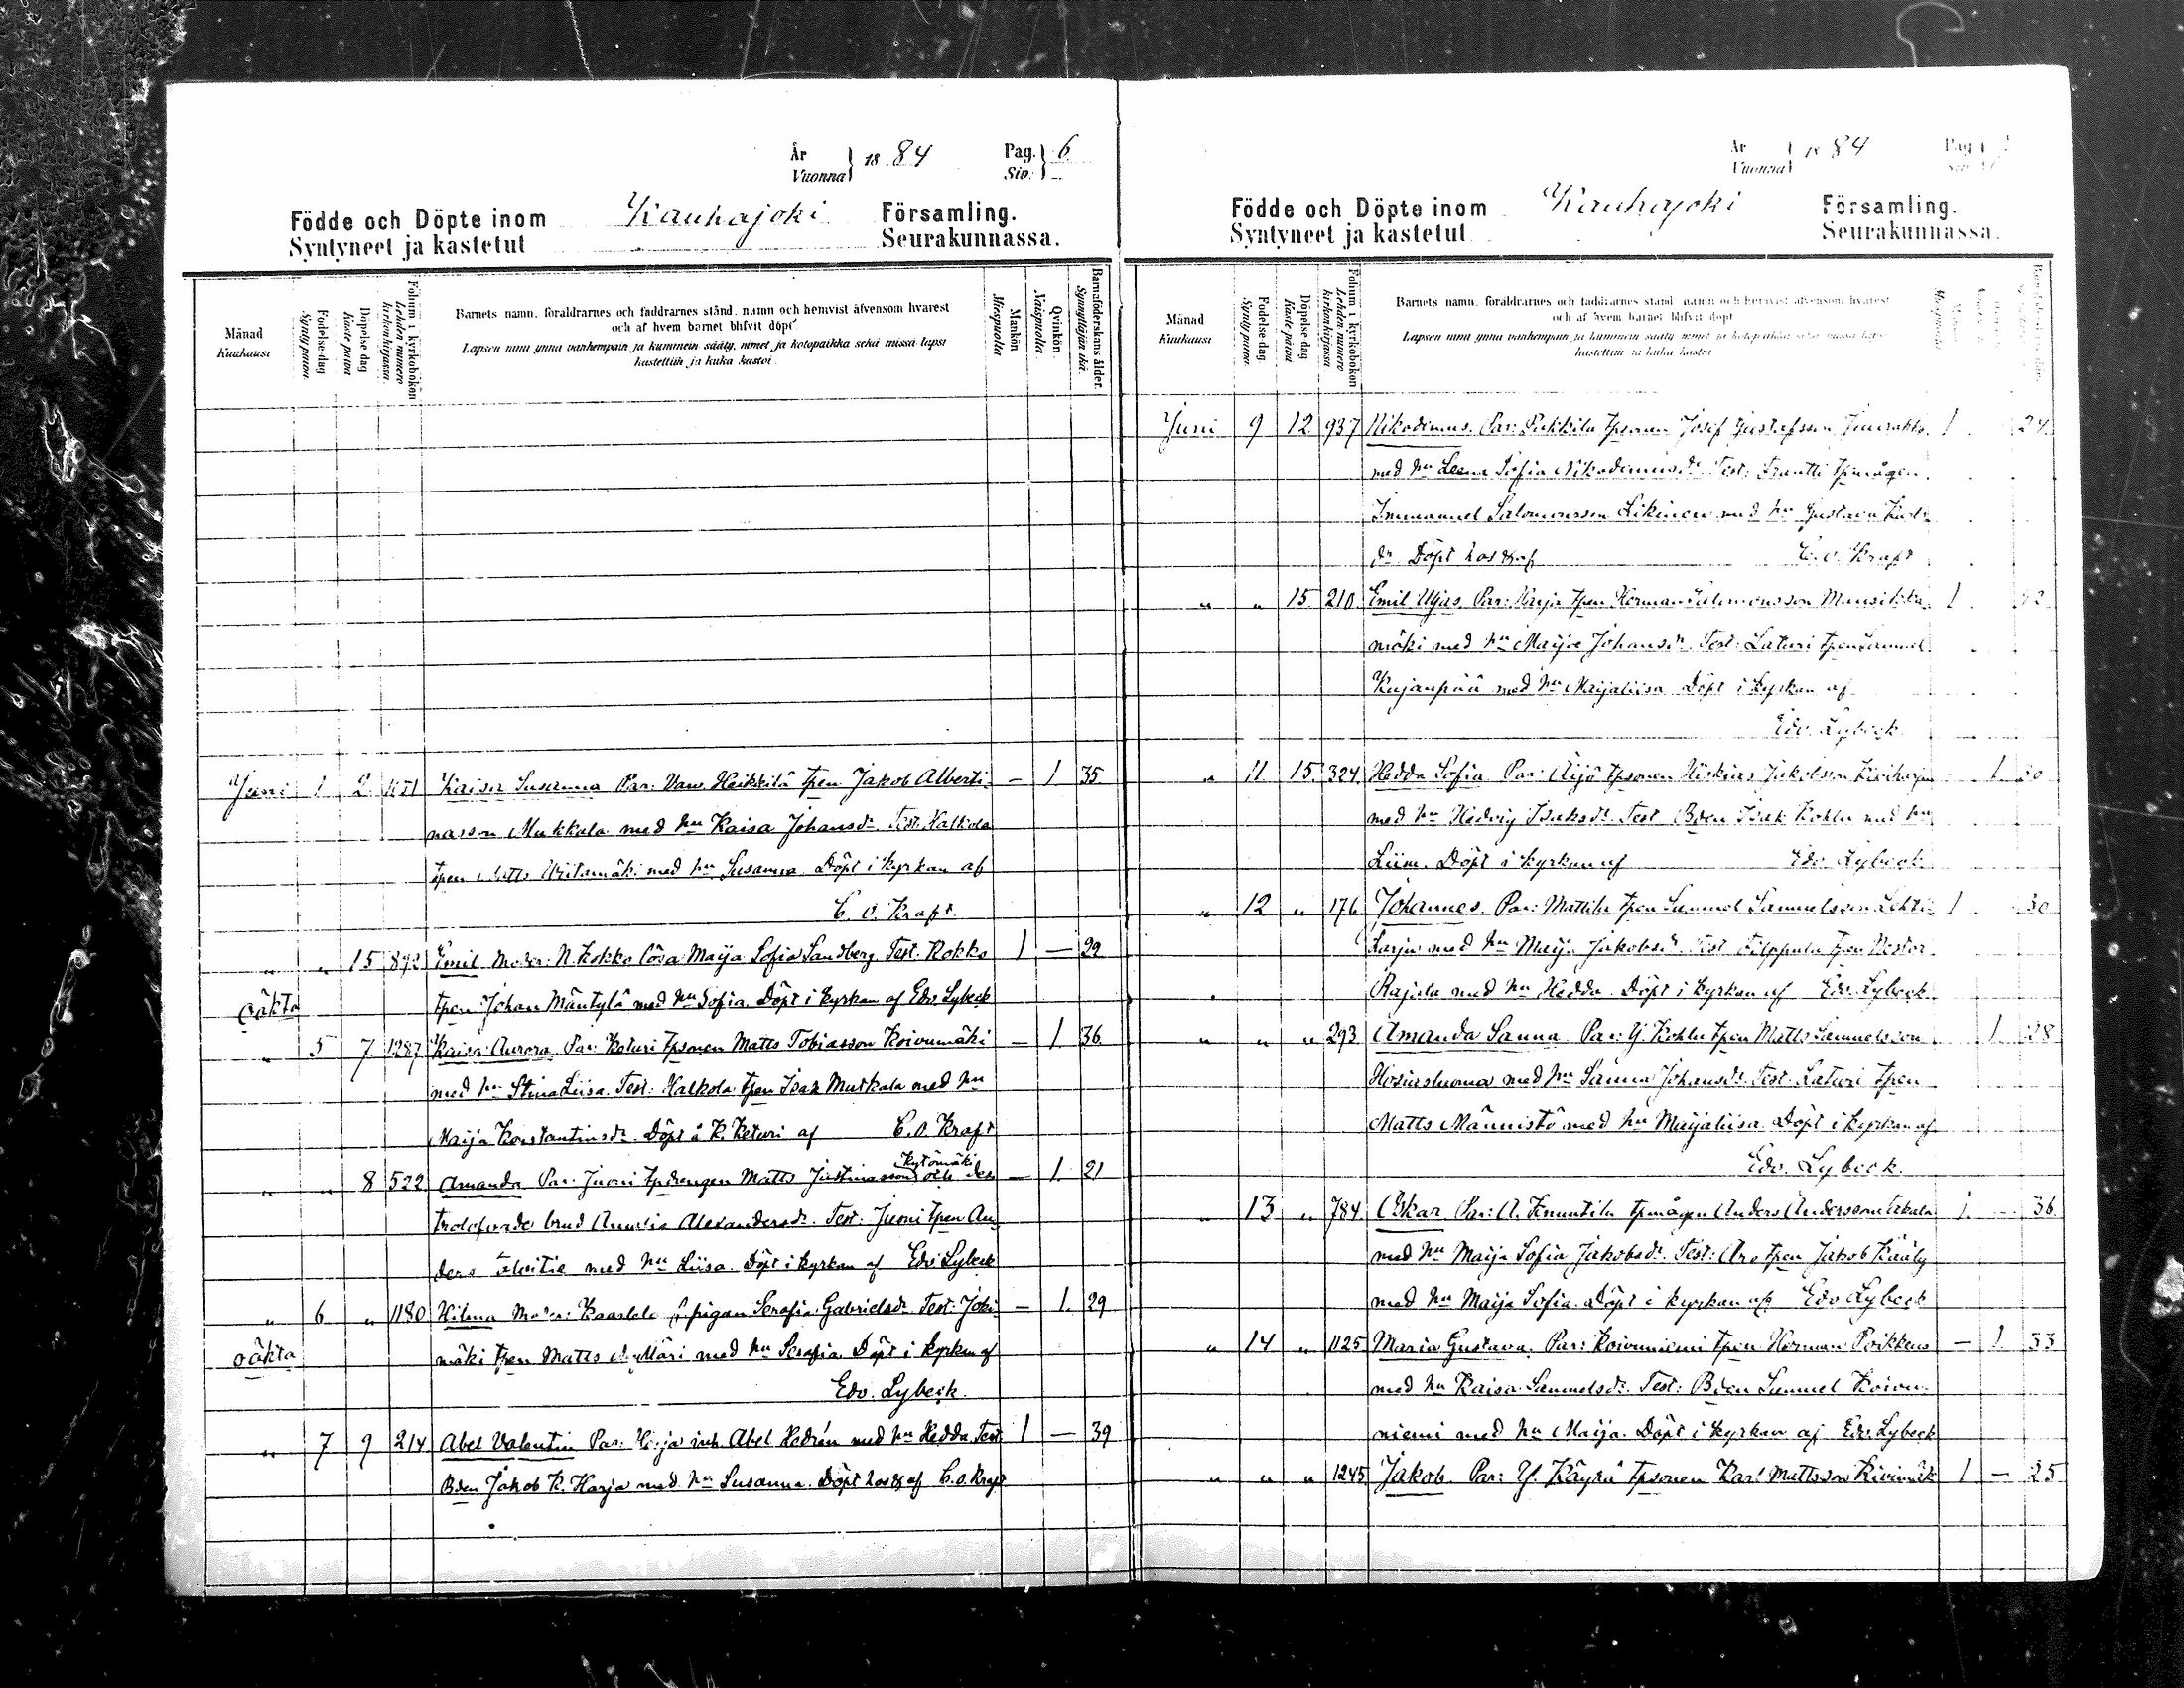 År
Vuonna } 1884 Pag. } 6
Siv.
Födde och Döpte inom Kauhajoki Församling.
Syntyneet ja kastetut Seurakunnassa.
Månad
Kuukausi
Födelse-dag
Synty päivä.
Döpelse dag
Kaste päivä
Folium i kyrkoboken
Lehden numero kirkonkirjassa.
Barnets namn, föräldrarnes och faddrarnes stånd, namn och hemvist äfvensom hvarest
och af hvem barnet blifvit döpt
Lapsen nimi ynnä vanhempain ja kummein sääty, nimet ja kotopaikka sekä missä lapsi
kastettiin ja kuka kastoi.
Mankön
Miespuolta
Qvinkön.
Naispuolta
Barnaföderskans ålder.
Synnyttäjän ikä.
Juni 1 2 Kaisa Susanna Par: Heikkilä tpen Jakob Alberti- — 1 35
nasson Mukkala med hu Kaisa Johansdr. Test. Halkola
tpen Matts med hu Susanna. Döpt i kyrkan af
C. O. Kraft.
" " 15 892 Emil Moder: N Kokko lösa Maija Sofia Sandberg Test. Kokko 1 — 29
oäkta tpen Johan Mäntylä med hu Sofia. Döpt i kyrkan af Edv. Lybeck
" 5 7 1287 Kaisa Aurora. Par: Keturi tpsonen Matts Tobiasson Koivumäki — 1 36
med hu Stina Liisa. Test: Halkola tpen Isak Mukkala med hu
Maija Konstantinsdr. Döpt å K. Keturi af C. O. Kraft
" " 8 522 Amanda Par: Juoni tpdrengen Matts Justinasson Kytömäki och dess — 1 21
trolofvade brud Amalia Alexandersdr. Test: Juoni tpen An-
ders med hu Liisa. Döpt i kyrkan af Edv Lybeck
" 6 " 1180 Hilma Moder: pigan Serafia Gabrielsdr. Test: Joki- — 1 29
oäkta mäki tpen Matts med hu Serafia Döpt i kyrkan af
Edv. Lybeck.
" 7 9 214 Abel Valentin Par: Harja inh. Abel Hedrén med hu Hedda. Test: 1 — 39
Bden Jakob K. Harja med hu Susanna. Döpt hos af C. O. Kraft
År
Vuonna } 1884 Pag.
Födde och Döpte inom Kauhajoki Församling.
Syntyneet ja kastetut Seurakunnassa.
Månad
Kuukausi
Födelse-dag
Synty päivä.
Döpelse dag
Kaste päivä
Folium i kyrkoboken
Lehden numero kirkonkirjassa
Barnets namn, föräldrarnes och faddrarnes stånd, namn och hemvist äfvensom hvarest
och af hvem barnet blifvit döpt
Lapsen nimi ynnä vanhempain ja kummein sääty nimet ja kotopaikka sekä missä lapsi
kastettiin ja kuka kastoi
Juni 9 12 937 Nikodimus. Par: Pukkila tpsonen Josef Gustafsson 1 24
med hu Leena Sofia Nikodimusdr. Test: Frantti tpmågen
Immanuel Salomonsson Likinen med hu Gustava Karls-
dr Döpt hos af C. O. Kraft
" " 15 210 Emil Uljas Par: Harja tpen Herman Salomonsson Mansikka- 1 42
mäki med hu Maija Johansdr. Test: Laturi tpen Samuel
Kujanpää med hu Maijaliisa Döpt i kyrkan af
Edv. Lybeck
" 11 15 324 Hedda Sofia Par: Äijö tpsonen Hiskias Jakobsson Kiviharju 1 30
med hu Hedvig Isaksdr. Test Bden Isak Kohlu med hu
Liisa. Döpt i kyrkan af Edv. Lybeck
" 12 " 176 Johannes. Par: Mattila tpen Samuel Samuelsson Lehti- 1 30
harju med hu Maija Jakobsdr. Test Filppula tpen Nestor
Rajala med hu Hedda. Döpt i kyrkan af Edv. Lybeck
" " " 293 Amanda Sanna Par: Y. Kohlu tpen Matts Samuelsson 1 28
med hu Sanna Johansdr. Test: Laturi tpen
Matts Männistö med hu Maijaliisa. Döpt i kyrkan af
Edv. Lybeck.
" 13 " 784 Oskar Par: A. Knuutila tpmågen Anders Andersson 1 36
med hu Maija Sofia Jakobsdr. Test: Aro tpen Jakob
med hu Maija Sofia. Döpt i kyrkan af Edv Lybeck
" 14 " 1125 Maria Gustava. Par: Koivuniemi tpen Herman Poikkeus — 1 33
med hu Kaisa Samuelsdr. Test: Bden Samuel Koivu-
niemi med hu Maija. Döpt i kyrkan af Edv. Lybeck
" " " 1245 Jakob Par: Y. Käyrä tpsonen Karl Mattsson 1 — 25